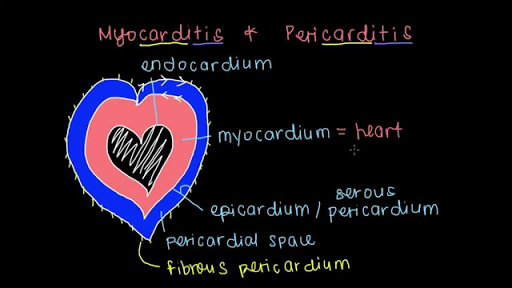 Myocarditis & Pericarditis
endocardium
myocardium = heart
epicardium / serous pericardium
pericardial space
fibrous pericardium